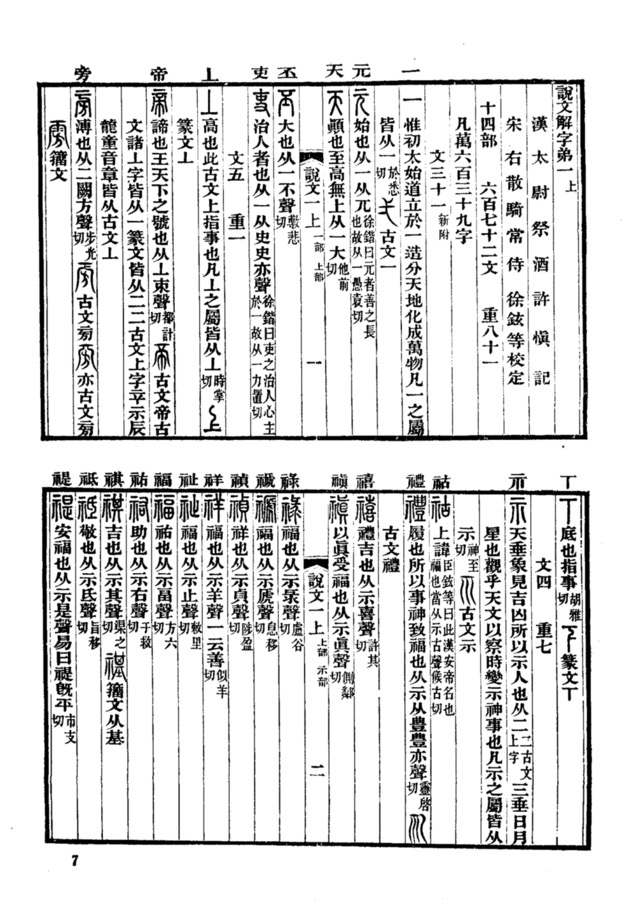 說文解字弟一上
漢太尉祭酒許愼記
宋右散騎常侍徐鉉等校定
十四部 六百七十二文 重八十一
凡萬六百三十九字
文三十一新附
一
一惟初太始道立於一造分天地化成萬物凡一之屬
皆从一於悉切古文一
元
元始也从一从兀徐鍇曰元者善之長也故从一愚袁切
天
天顚也至高無上从一大他前切
說文一上 一部 上部 一
丕
丕大也从一不聲敷悲切
吏
吏治人者也从一从史史亦聲徐鍇曰吏之治人心主於一故从一力置切
文五 重一
丄
丄高也此古文上指事也凡丄之屬皆从丄時掌切上
篆文丄
帝
帝諦也王天下之號也从丄朿聲都計切古文帝古
文諸丄字皆从一篆文皆从二二古文上字䇂示辰
龍童音章皆从古文丄
旁
旁溥也从二闕方聲步光切古文旁亦古文旁
籒文
丅
丅底也指事胡雅切篆文丅
文四 重七
示
示天垂象見吉凶所以示人也从二二古文上字三垂日月
星也觀乎天文以察時變示神事也凡示之屬皆从
示神至切古文示
祜
祜上諱臣鉉等曰此漢安帝名也福也當从示古聲候古切
禮
禮履也所以事神致福也从示从豊豊亦聲靈啓切
古文禮
禧
禧禮吉也从示喜聲許其切
禛
禛以眞受福也从示眞聲側鄰切
說文一上 上部 示部 二
祿
祿福也从示彔聲盧谷切
禠
禠福也从示虒聲息移切
禎
禎祥也从示貞聲陟盈切
祥
祥福也从示羊聲一云善似羊切
祉
祉福也从示止聲敕里切
福
福祐也从示畐聲方六切
祐
祐助也从示右聲于救切
祺
祺吉也从示其聲渠之切籒文从基
祗
祗敬也从示氐聲旨移切
禔
禔安福也从示是聲易曰禔旣平市支切
7